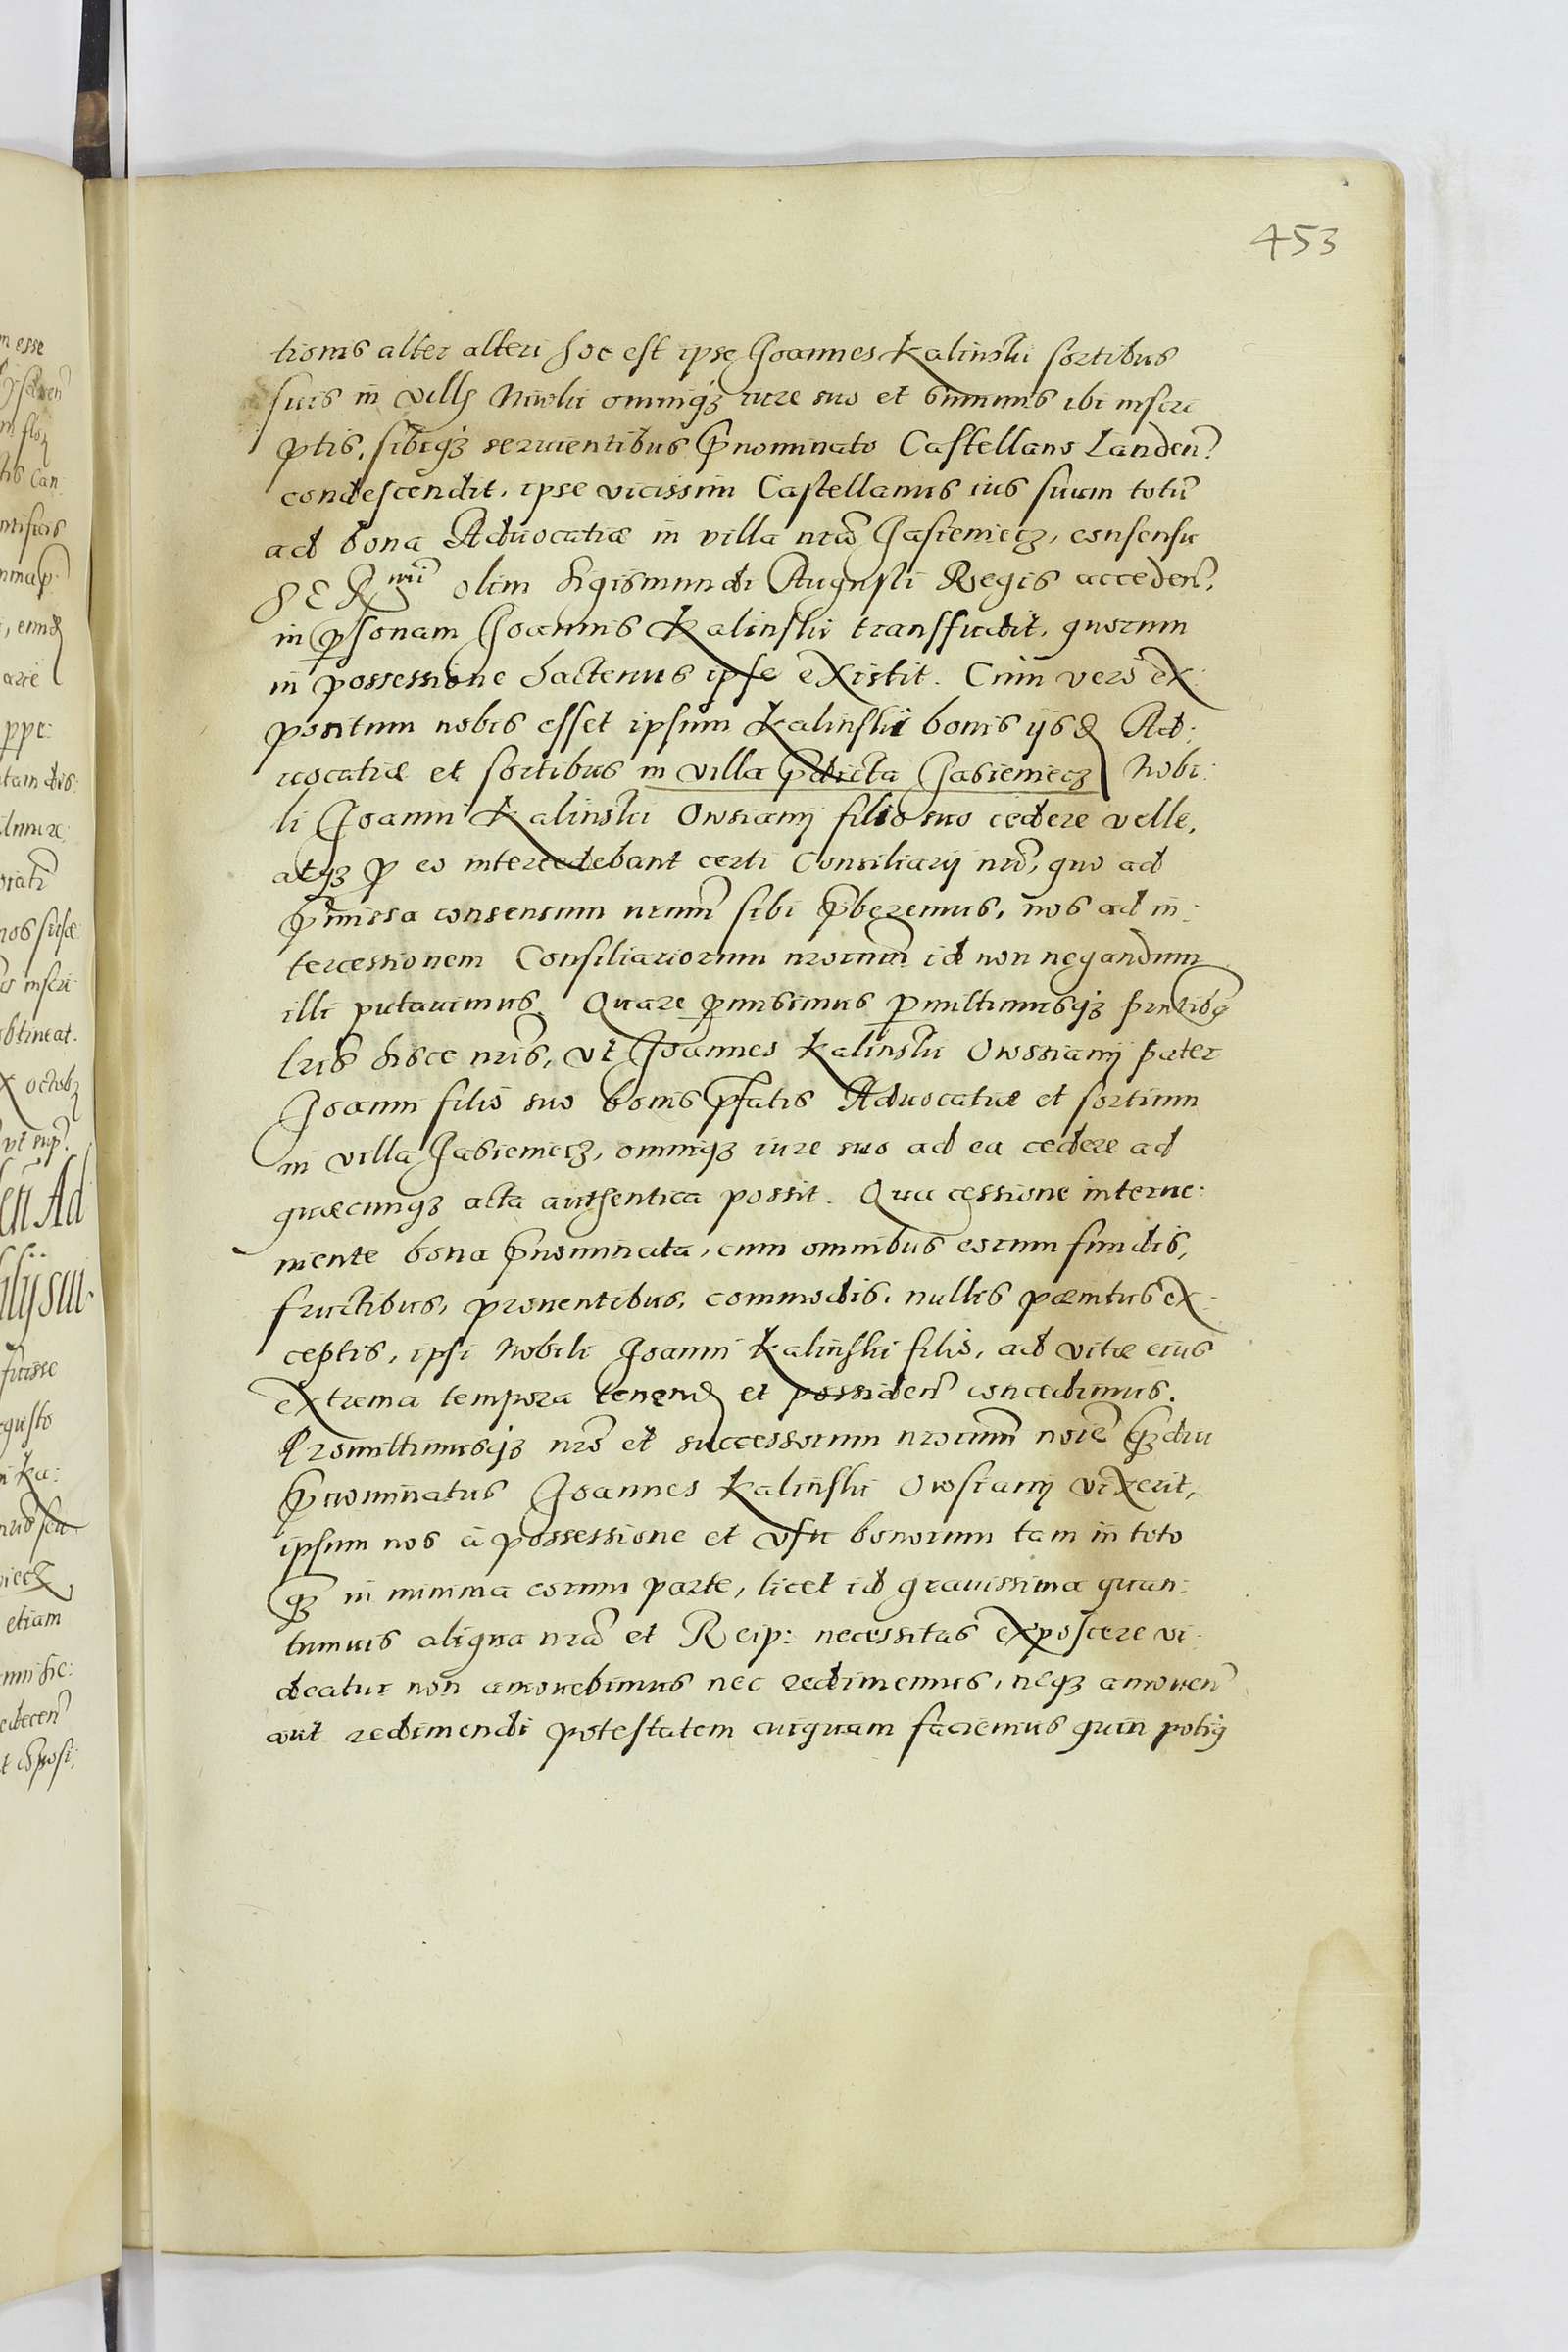 453
tionis alter alteri hoc est ipse Joannes Kalinski sortibus
suis in villa Niwki omniq3 iure suo et summis ibi inscri
ptis, sibiq3 seruientibus p̄nominato Castellano Landeñ.
condescendit, ipse vicissim Castellanus ius suum totū
ad bona Aduocatiæ in villa nrã Jasieniecz, consensu
S E R̃mi olim Sigismundi Augusti Regis acceden̄,
in psonam Joannis Kalinski transfudit, quorum
in possessione hactenus ipse existit. Cum vero ex:
positum nobis esset ipsum Kalinskii bonis ijsd Ad:
uocatiæ et sortibus in villa p̄dicta Jasieniecz Nobi:
li Joanni Kalinski Owsiany filio suo cedere velle,
atq3 p eo intercedebant certi Consiliarij nrĩ, quo ad
p̄missa consensum nrum̄ sibi p̄beremus, nos ad in:
tercessionem Consiliariorum nrorum̄ id non negandum
illi putauimus. Quare pmisimus pmittimusq3 p̄ntibq
lris hisce nris̄, vt Joannes Kalinski Owssiany pater
Joanni filio suo bonis p̄fatis Aduocatiæ et sortium
in villa Jasieniecz, omniq3 iure suo ad ea cedere ad
quæcunq3 acta authentica possit. Qua cessione interue:
niente bona p̄nominata, cum omnibus eorum fundis,
fructibus, prouentibus, commodis, nullis pænitus ex:
ceptis, ipsi Nobili Joanni Kalinski filio, ad vitæ eius
extrema tempora tenend et possiden̄ concedimus.
Promittimusq3 nrō et successorum nrorum̄ noīe q3diu
p̄nominatus Joannes Kalinski Owsiany vixerit,
ipsum nos à possessione et vsu bonorum tam in toto
q3 in minima eorum parte, licet id grauissima quan:
tumuis aliqua nrã et Reip: necessitas exposcere vi:
deatur non amouebimus nec redimemus, neq3 amouen̄
aut redimendi potestatem cuiquam faciemus quin potiq